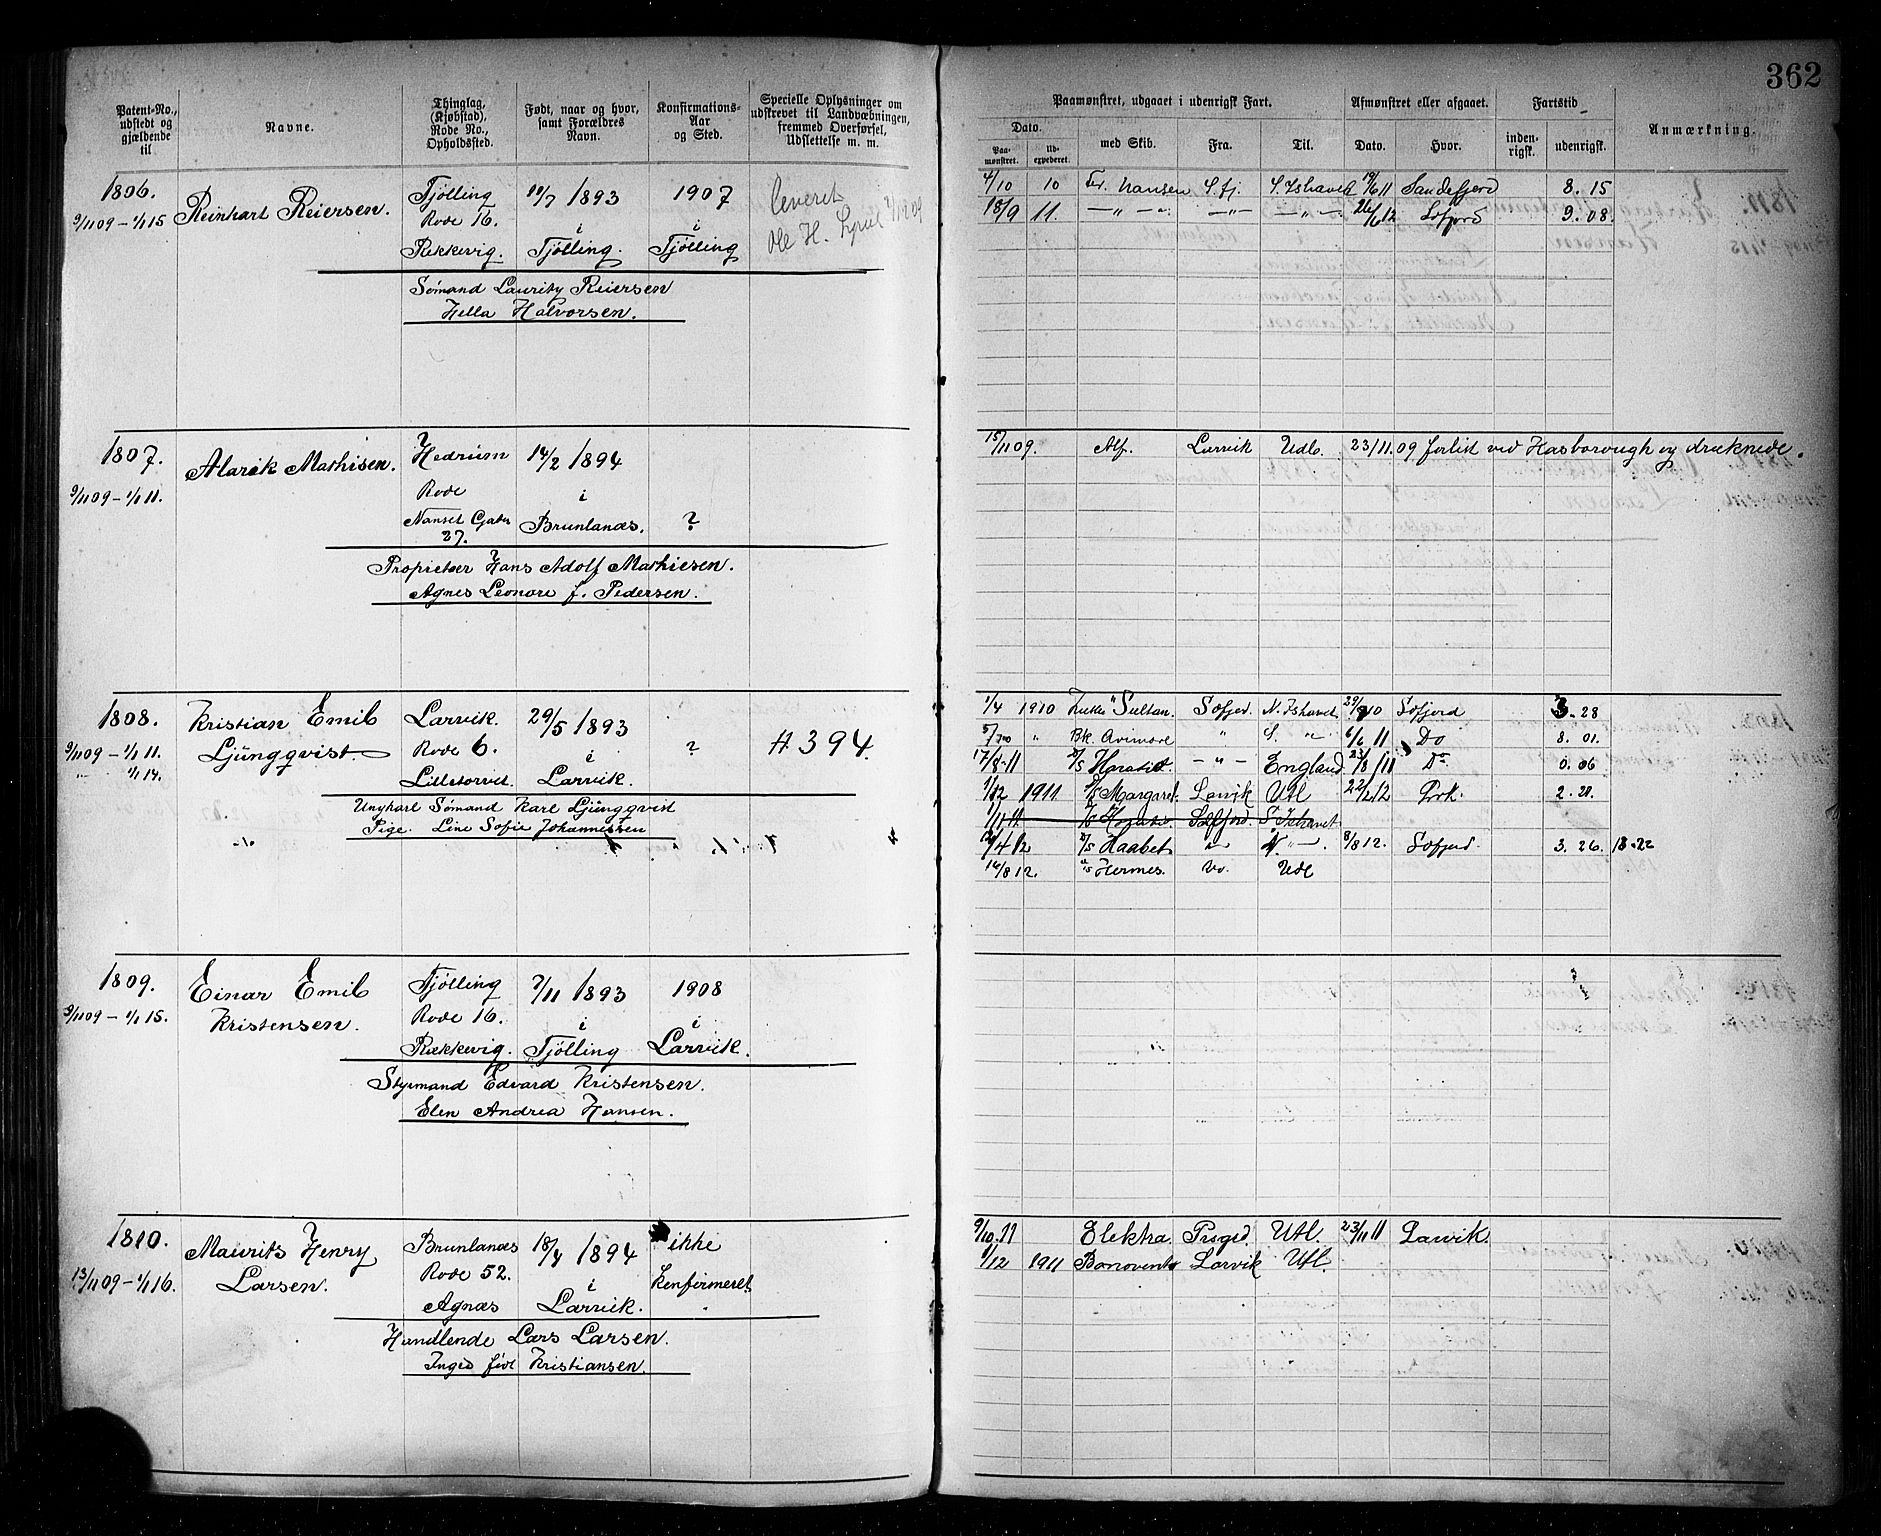 362
Patent-No., udstedt og gjældende til
Navne.
Thinglag, (Kjøbstad), Rode No., Opholdssted.
Født, naar og hvor, samt Forældres Navn.
Konfirmations-Aar og Sted.
Specielle Oplysninger om udskrevet til Landværbningen, fremmed Overførsel, Udslettelse m. m.
Paamønstret, udgaaet i udenrigsk Fart.
Afmønstret eller afgaaet.
Fartstid
Anmærkning.
Dato.
Paa-mønstret.
Ud-expederet.
med Skib.
Fra.
Til.
Dato.
Hvor.
inden-rigsk.
udenrigsk.
1806.
9/11 09 – 1/1 15
Reinhart Reiersen.
Tjölling
Rode 16.
Rekkevig.
1893
i
Tjölling.
1907
i
Tjölling
Leveret
Ole H.
Sømand Lauritz Reiersen
Hella Halvorsen.
4/10 10 Fr. Nansen S.fj. S. Ishavet 19/6 11 Sandefjord 8. 15
18/9 11. —„— —„— —„— 26/6 12 Sefjord 9. 08.
1807.
9/11 09 – 1/1 11.
Alarik Mathisen.
Hedrum
Rode
Nanset Gaten
27.
14/2 1894
i
Brunlanæs.
?
Proprietær Hans Adolf Mathiesen.
Agnes Leonore f. Pedersen.
15/11 09. Alf. Larvik Udl. 23/11.09 forlist ved Hasborough og druknede.
1808.
9/11 09 – 1/1 11.
„ 1/1 14.
Kristian Emil
Ljüngqvist.
Larvik.
Rode 6.
Lilletorvet.
29/5 1893
i
Larvik.
?
A 394
Ungkarl Sømand Karl Ljüngqvist
Pige Line Sofie Johannessen
1/4 1910 Sultan. Sefjord. N. Ishavet 10 Sefjord 3. 28
„ Bk Avimore „ S. „ 6/6 11 Do 8. 01.
17/8 11 Horatio. —„— England 23/8 11 Do 0. 06
1/12 1911 S/S Margaret. Larvik Utl 22/2 12 2. 21.
1/11 11 Horatio. Sefjord. S. Ishavet
4 12 Haabet N. „ 8/8 12. Sefjord. 3. 26. 18-22
16/8 12. Hermes. Do. Udl
1809.
9/11 09 – 1/1 15.
Einar Emil
Kristensen.
Tjölling
Rode 16.
Rækkevig.
7/11 1893
i
Tjölling
1908
i
Larvik.
Styrmand Edvard Kristensen.
Elen Andrea Hansen.
1810.
13/11 09 – 1/1 16.
Maurits Henry
Larsen.
Brunlanæs
Rode 52.
Agnæs
18/4 1894
i
Larvik.
ikke
Konfirmeret.
Handlende Lars Larsen.
Inga født Kristiansen.
9/10. 11 Elektra Utl. 23/11 11 Larvik.
1/12 1911 Bonaventa Larvik Utl.